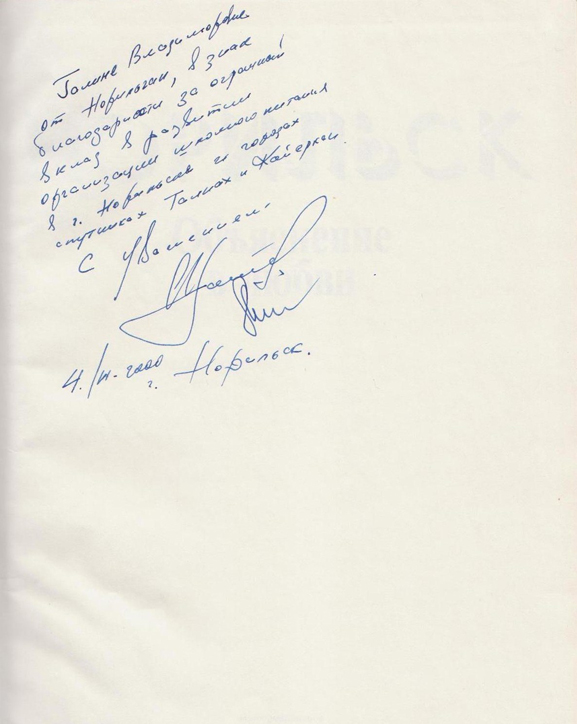 Галине Владимировне
от Норильчан, в знак
благодарности за огромный
вклад в развитии
организации школьного питания
в г. Норильске и городах
спутниках Талнах и Кайеркан.
С Уважением.
4./IV-2000
г. Норильск.
НОРИЛЬСК
Объяснение
в любви